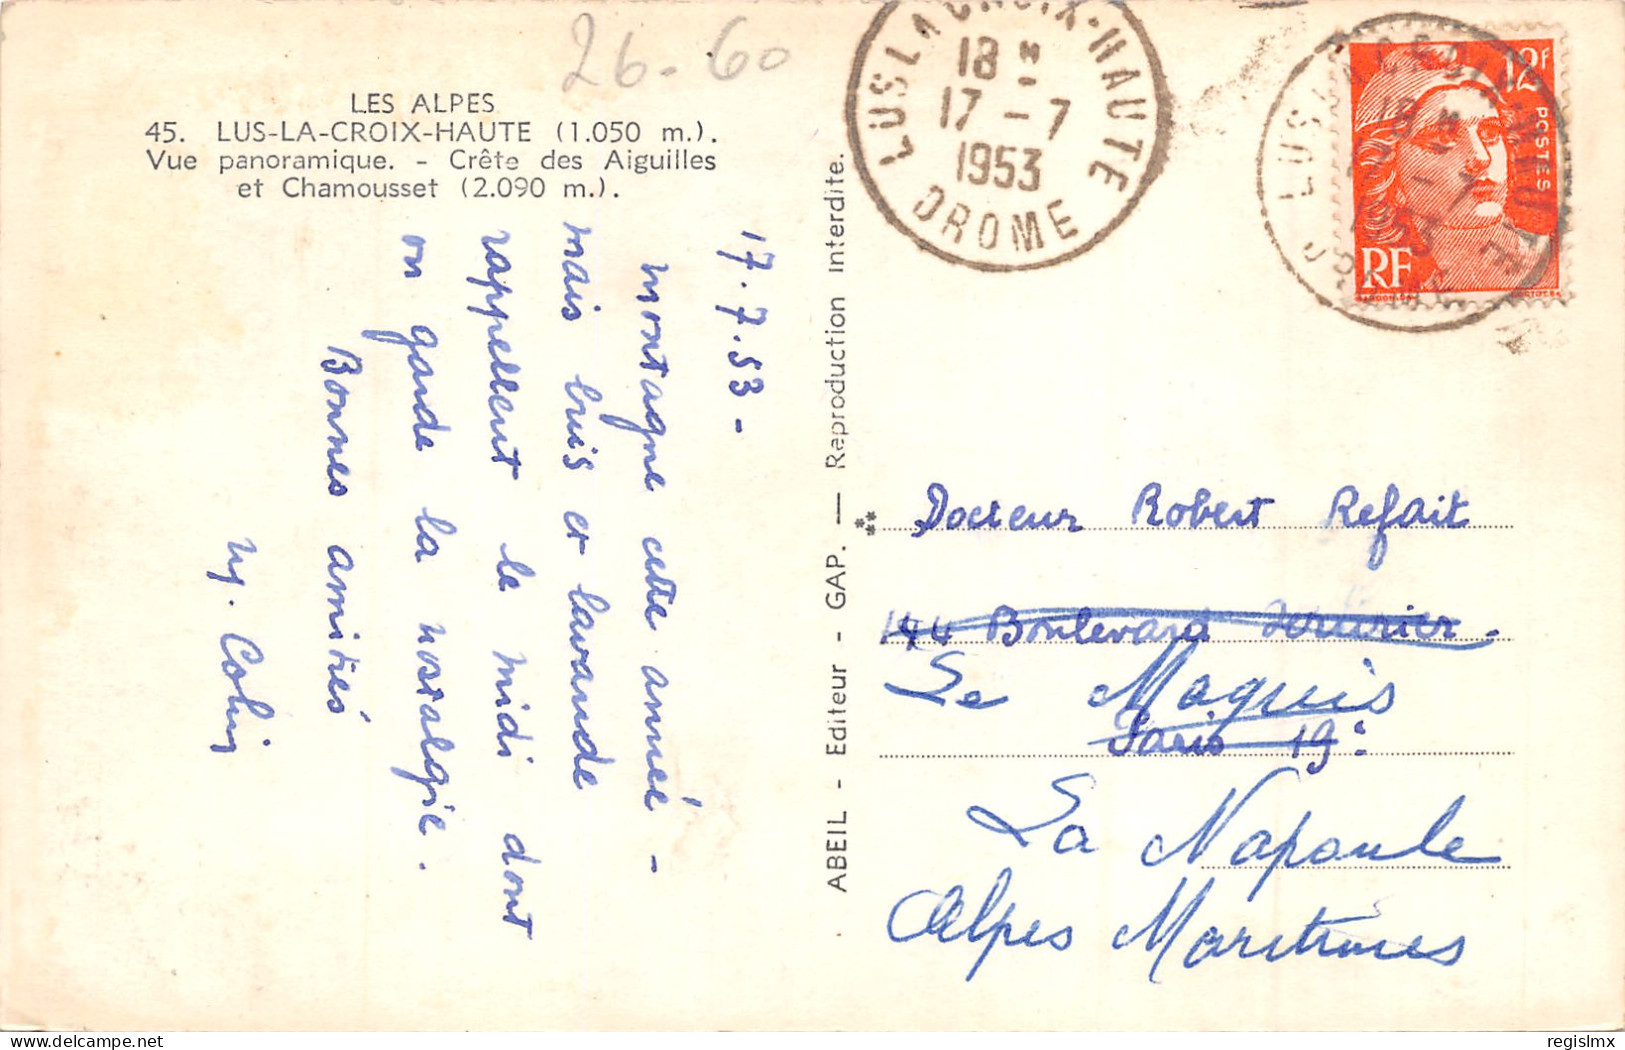 26-60
LES ALPES
45. LUS-LA-CROIX-HAUTE (1.050 m.).
Vue panoramique. - Crête des Aiguilles
et Chamousset (2.090 m.).
17.7.53-
Montagne cette année -
mais buis et lavande
rappellent le midi dont
on garde la nostalgie.
Bonnes amitiés
M. Colin
ABEIL - Editeur - GAP. — Reproduction Interdite.
LUS LA CROIX-HAUTE
18 H
17 - 7
1953
DROME
12F
POSTES
RF
Docteur Robert Refait
144 Boulevard Sérurier.
Le Maquis
Paris 19e
La Napoule
Alpes Maritimes
delcampe.net
regislmx